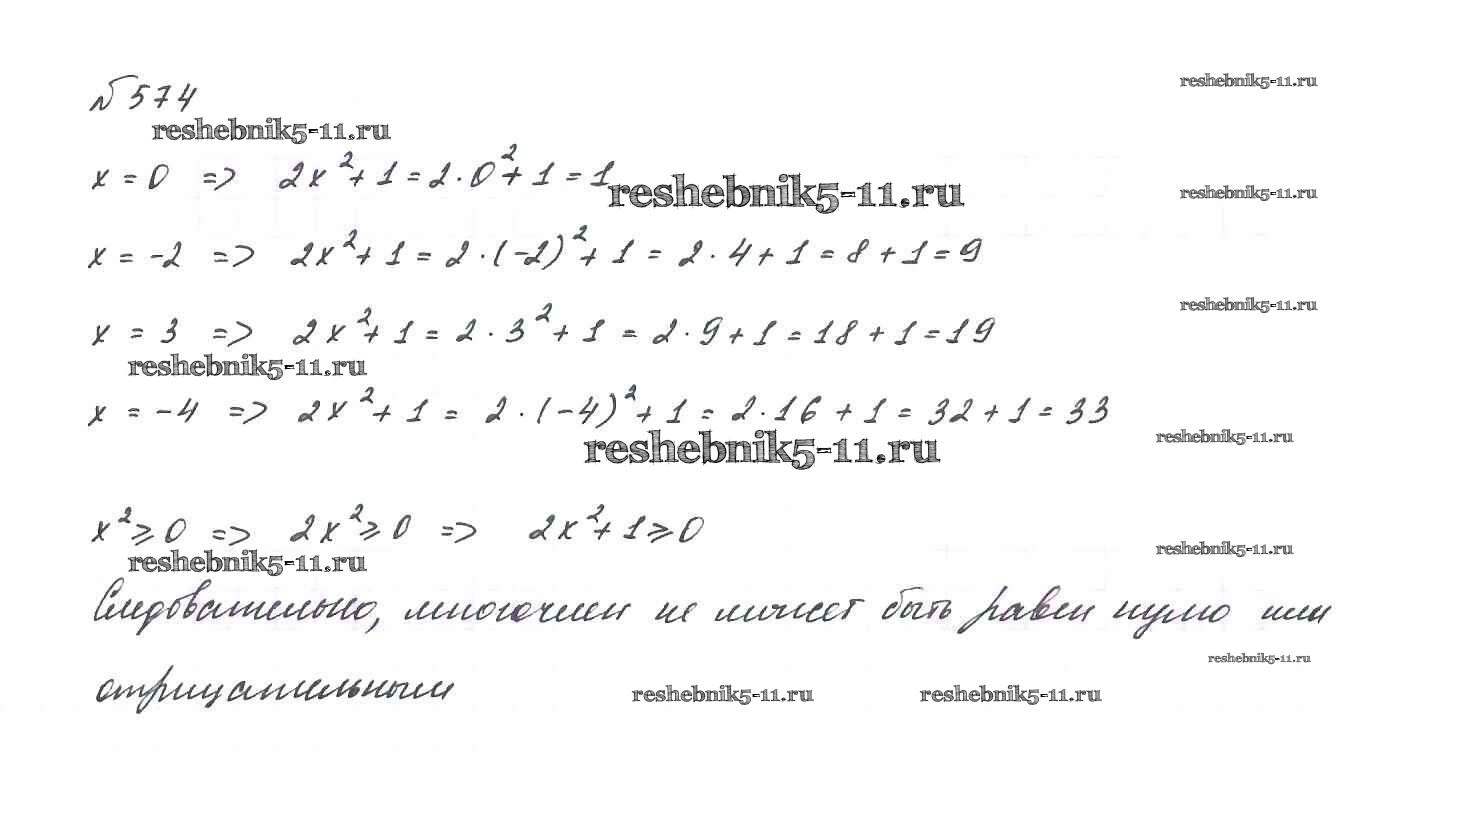 № 574
reshebnik5-11.ru
reshebnik5-11.ru
x = 0 => 2x² + 1 = 2 · 0² + 1 = 1
reshebnik5-11.ru
reshebnik5-11.ru
x = -2 => 2x² + 1 = 2 · (-2)² + 1 = 2 · 4 + 1 = 8 + 1 = 9
reshebnik5-11.ru
x = 3 => 2x² + 1 = 2 · 3² + 1 = 2 · 9 + 1 = 18 + 1 = 19
reshebnik5-11.ru
x = -4 => 2x² + 1 = 2 · (-4)² + 1 = 2 · 16 + 1 = 32 + 1 = 33
reshebnik5-11.ru
reshebnik5-11.ru
x² ⩾ 0 => 2x² ⩾ 0 => 2x² + 1 ⩾ 0
reshebnik5-11.ru
reshebnik5-11.ru
Следовательно, многочлен не может быть равен нулю или
reshebnik5-11.ru
отрицательным
reshebnik5-11.ru
reshebnik5-11.ru